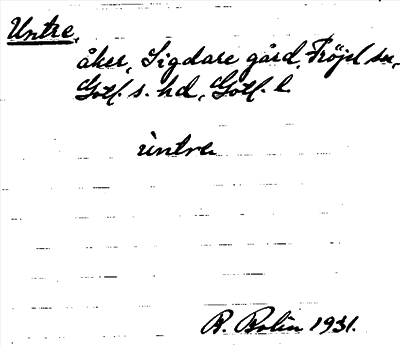 Untre,
åker, Sigdare gård, Fröjel sn,
Gotl. s. hd, Gotl. l.
ùntre
B. Bolin 1931.